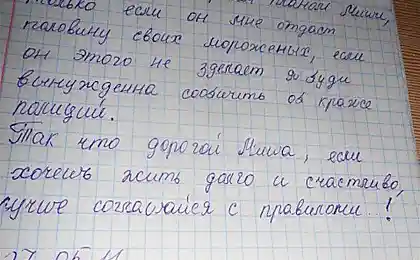 только если он мне отдаст
половину своих мороженых, если
он этого не зделает я буди
вынужденна соовичить ов краже
полиций.
Так что дорогой Миша, если
хочешь жить долго и счастливо,
лучше соглашайся с правиломи..!